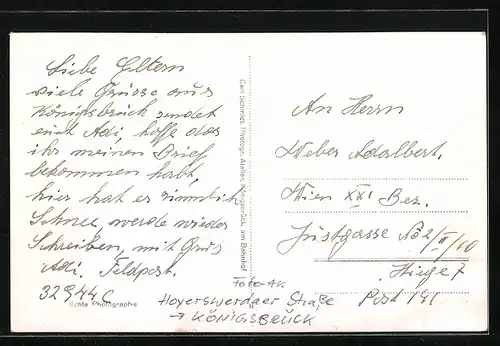 Liebe Eltern
viele Grüsse aus
Königsbrück sendet
euch Adi, hoffe das
ihr meinen Brief
bekommen habt,
hier hat es ziemlich
Schnee, werde wieder
Schreiben, mit Grus
Adi. Feldpost.
32944 C
Echte Photographie
Carl Schmidt, Photogr. Atelier, Königsbrück, am Bahnhof
An Herrn
Weber Adalbert.
Wien XXI Bez.
Justgasse No 2/II/60
Stiege 7
Post 141
Foto-AK
Hoyerswerdaer Straße
→ KÖNIGSBRÜCK